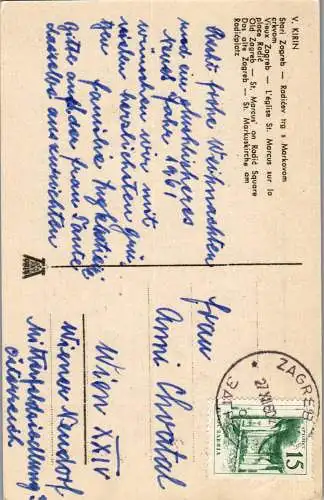 V. KIRIN
Stari Zagreb — Radićev trg s Markovom
crkvom
Vieux Zagreb — L'église St. Marcus sur la
place Radić
Old Zagreb — St. Marcus' on Radić Square
Das alte Zagreb — St. Markuskirche am
Radićplatz
Recht frohe Weihnachten
und ein glückliches
Neues Jahr 1961
wünschen wir mit
vielen herzlichsten
Familie
auch der Frau Tante
dieselbe auszurichten
Frau
Anni Chvatal
Wien XXIV
Wiener Neudorf
Mitterfeldsiedlung
Österreich
ZAGREB
27 XII 60
15